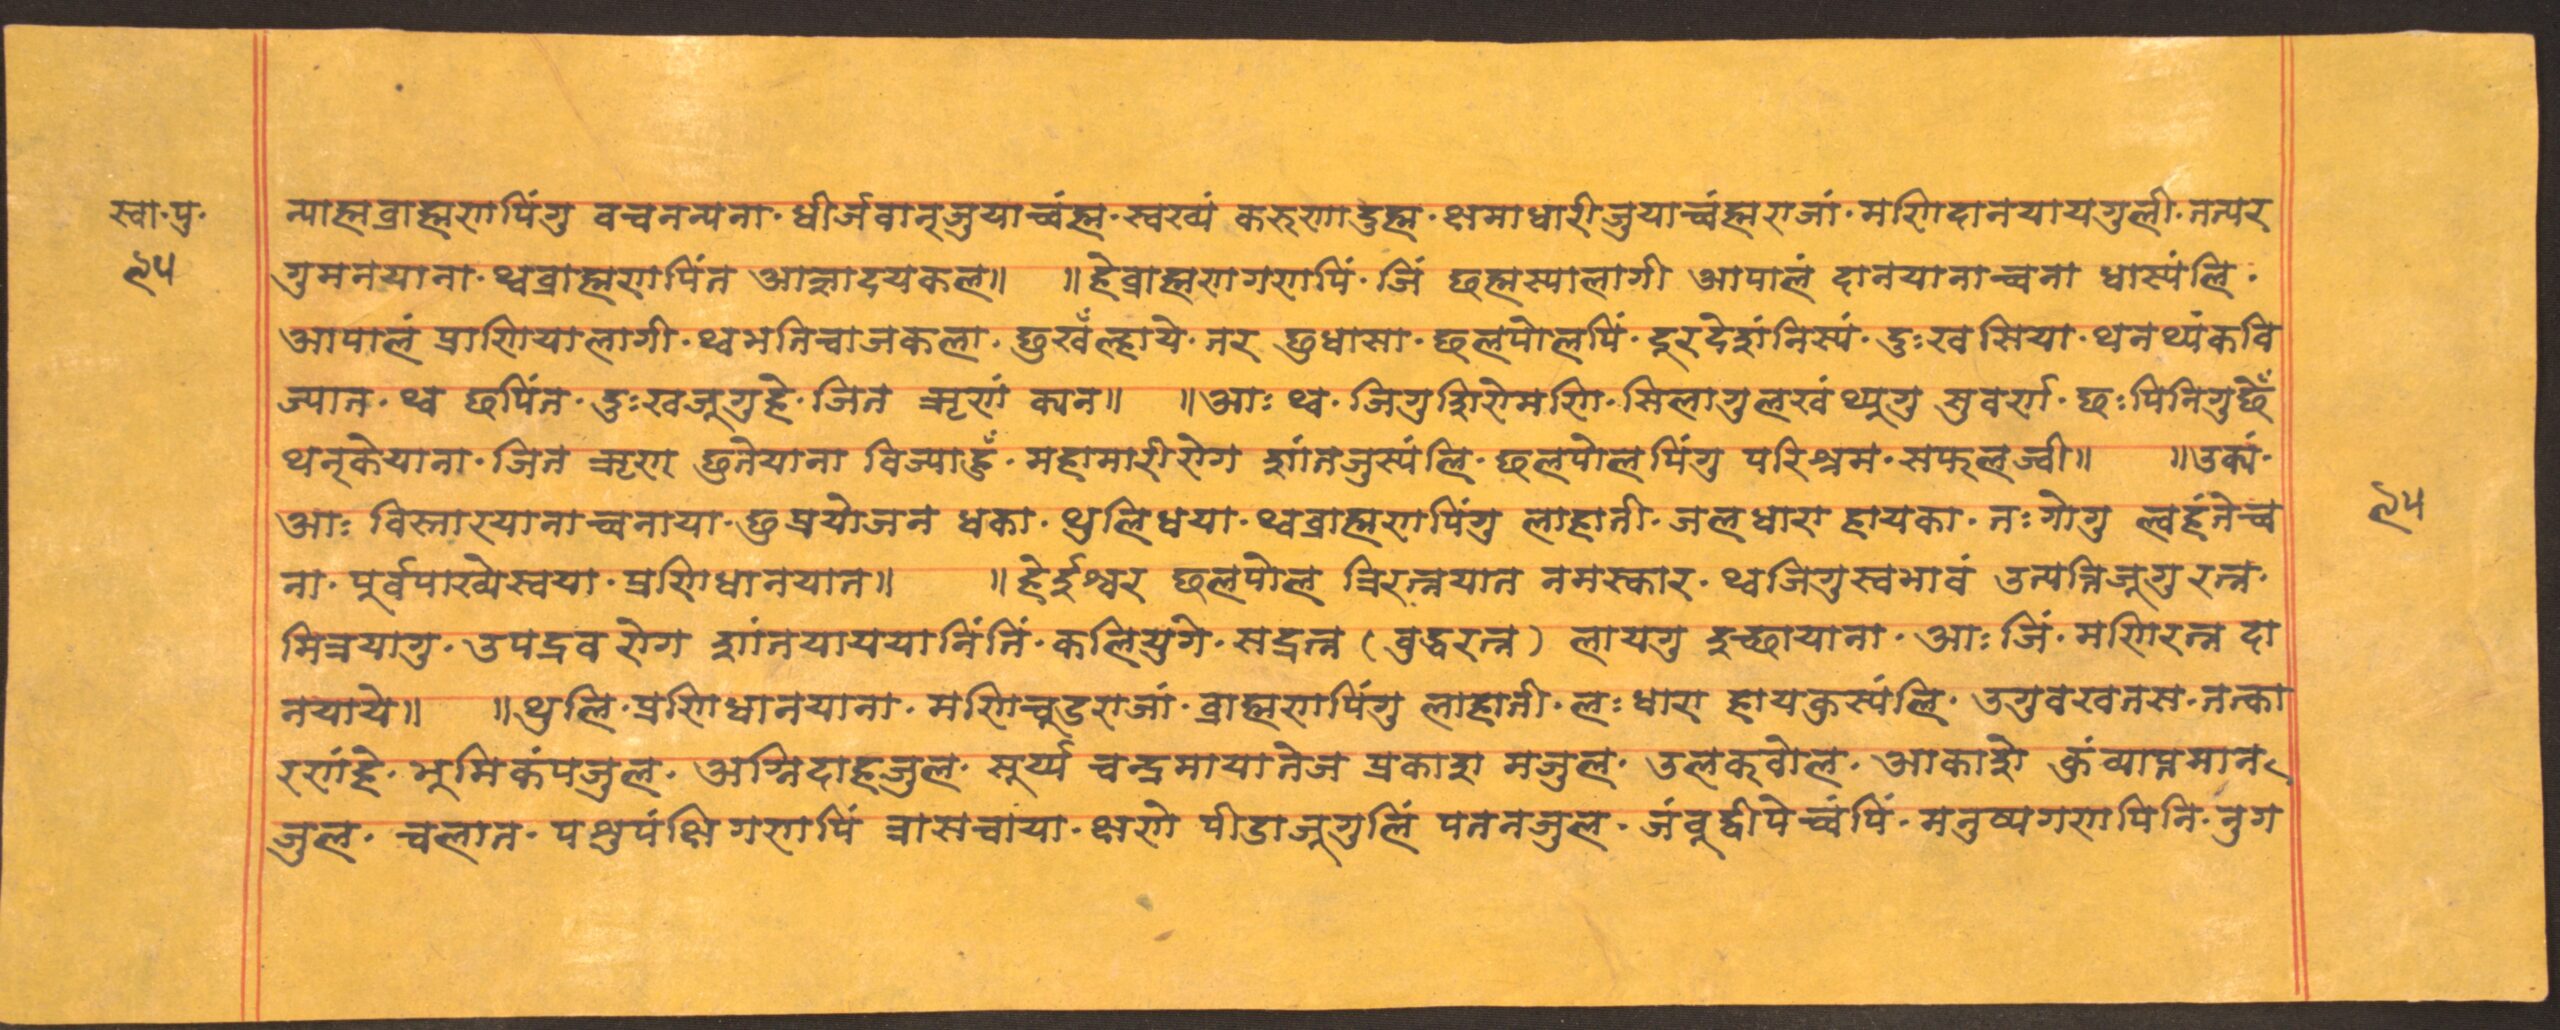 स्वा·पु·
९५
न्याह्मब्राह्मणपिंगु वचनन्यना· धीर्जवानजुयाच्वंह्म· स्वख्यं करुणादुह्म· क्षमाधारीजुयाच्वंह्मराजां· मणिदानयायगुली· तत्पर
गुमनयाना· थ्वब्राह्मणपिंत आज्ञादयकल॥ ॥हेब्राह्मणगणपिं· जिं छह्मस्यालागी आपालं दानयानाच्वना धास्यंलि·
आपालं प्राणियालागी· थ्वभतिचाजकला· छुखँल्हाये· तर छुधासा· छलपोलपिं· दूरदेशंनिस्यं· दुःखसिया· थनथ्यंकवि
ज्यात· थ्व छपिंत· दुःखजूगुहे· जित ऋणं क्यन॥ ॥आः थ्व· जिगुशिरोमणि· सिलागुलखं थ्यूगु सुवर्ण· छःपिनिगुछेँ
थन्केयाना· जित ऋण छुतेयाना विज्याहुँ· महामारीरोग शांतजुस्यंलि· छलपोलपिंगु परिश्रम· सफलज्वी॥ ॥उक्यं·
आः विस्तारयानाच्वनाया· छुप्रयोजन धका· थुलिधया· थ्वब्राह्मणपिंगु लाहाती· जलधारा हायका· तःगोगु ल्वहंतेच्व
ना· पूर्वपाख्येस्वया· प्रणिधानयात॥ ॥हेईश्वर छलपोल त्रिरत्नयात नमस्कार· थ्वजिगुस्वभावं उत्पन्निजूगु रत्न·
मित्रयागु· उपद्रव रोग शांतयाययानिंतिं· कलियुगे· सद्रत्न (बुद्धरत्न) लायगु इच्छायाना· आः जिं· मणिरत्न दा
नयाये॥ ॥थुलि· प्रणिधानयाना· मणिचूडराजां· ब्राह्मणपिंगु लाहाती· लःधारा हायकुस्यंलि· उगुवखतस· तत्का
रणंहे· भूमिकंपजुल· अग्निदाहजुल· सूर्य्य चन्द्रमायातेज प्रकाश मजुल· उलक्वोल· आकाशे कुंव्याप्तमान
जुल· च्वलात· पशुपंक्षि गणपिं त्रासचाया· क्षणे पीडाजूगुलिं पतनजुल· जंबूद्वीपेच्वंपिं· मनुष्यगणपिनि· नुग
९५